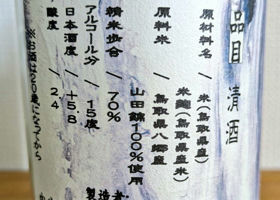 品目 清酒
原材料名/米(鳥取県産)
米麹(鳥取県産米)
原料米/鳥取県八郷産
山田錦100%使用
精米歩合/70%
アルコール分/15度
日本酒度/+5.8
酸度/2.
※お酒は20歳になってから
製造者: